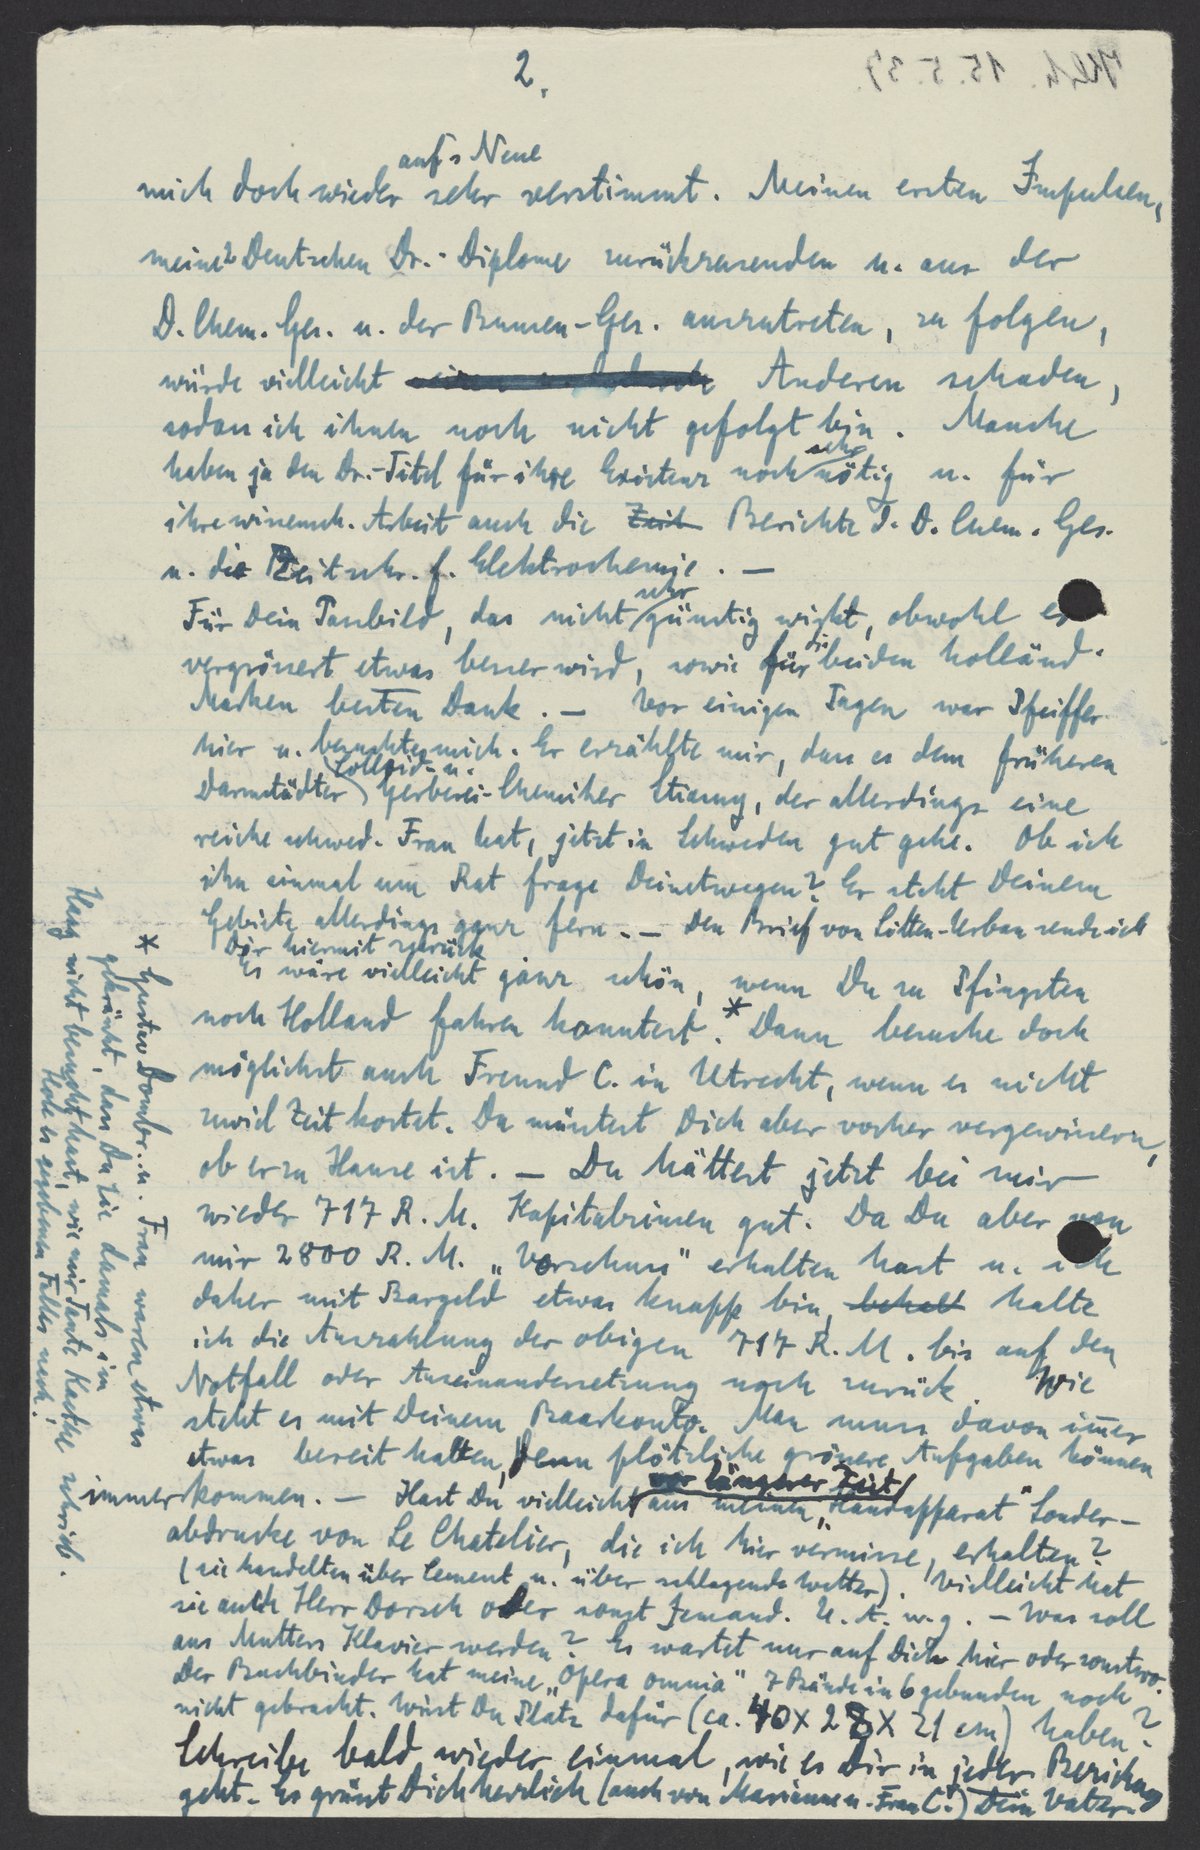 2.
auf's Neue
mich doch wieder sehr verstimmt. Meinen ersten Impulsen,
meine 2 Deutschen Dr.-Diplome zurückzusenden u. aus der
D. Chem. Ges. u. der Bunsen-Ges. auszutreten, zu folgen,
würde vielleicht Anderen schaden,
sodass ich ihnen noch nicht gefolgt bin. Manche
haben ja den Dr.-Titel für ihre Existenz noch sehr nötig u. für
ihre wissensch. Arbeit auch die Zeit Berichte d. D. Chem. Ges.
u. die Zeitschr. f. Elektrochemie. —
Für Dein Passbild, das nicht sehr günstig wirkt, obwohl es
vergrössert etwas besser wird, sowie für die beiden holländ.
Marken besten Dank. — Vor einigen Tagen war Pfeiffer
hier u. besuchte mich. Er erzählte mir, dass es dem früheren
Darmstädter Colloid- u. Gerberei-Chemiker Stiasny, der allerdings eine
reiche schwed. Frau hat, jetzt in Schweden gut gehe. Ob ich
ihn einmal um Rat frage Deinetwegen? Er steht Deinem
Gebiete allerdings ganz fern. — Den Brief von Litten-Urban sende ich
Dir hiermit zurück
Es wäre vielleicht ganz schön, wenn Du zu Pfingsten
noch Holland fahren konntest.* Dann besuche doch
möglichst auch Freund C. in Utrecht, wenn es nicht
zuviel Zeit kostet. Du müsstest Dich aber vorher vergewissern,
ob er zu Hause ist. — Du hättest jetzt bei mir
wieder 717 R.M. Kapitalzinsen gut. Da Du aber von
mir 2800 R.M. „Vorschuss" erhalten hast u. ich
daher mit Bargeld etwas knapp bin, behalt halte
ich die Auszahlung der obigen 717 R.M. bis auf den
Notfall oder Auseinandersetzung noch zurück. Wie
steht es mit Deinem Baarkonto. Man muss davon im̄er
etwas bereit halten, denn plötzliche grössere Aufgaben können
immer kommen. — Hast Du vielleicht vor längerer Zeit aus meinem „Handapparat" Sonder-
abdrucke von Le Chatelier, die ich hier vermisse, erhalten?
(sie handelten über Cement u. über schlagende Wetter). Vielleicht hat
sie auch Herr Dorsch oder sonst Jemand. U. A. w. g. — Was soll
aus Mutters Klavier werden? Es wartet nur auf Dich hier oder sonstwo.
Der Buchbinder hat meine „Opera omnia" 7 Bände in 6 gebunden noch
nicht gebracht. Wirst Du Platz dafür (ca. 40 x 28 x 21 cm) haben?
Schreibe bald wieder einmal, wie es Dir in jeder Beziehung
geht. Es grüsst Dich herzlich (auch von Marianne u. Frau C.) Dein Vater.
* Gustav Dombr. u. Frau waren etwas
gekränkt, dass Du sie damals im
Haag nicht besucht hast, wie mir Tante Kaethe schrieb.
Hole es gegebenen Falles nach!